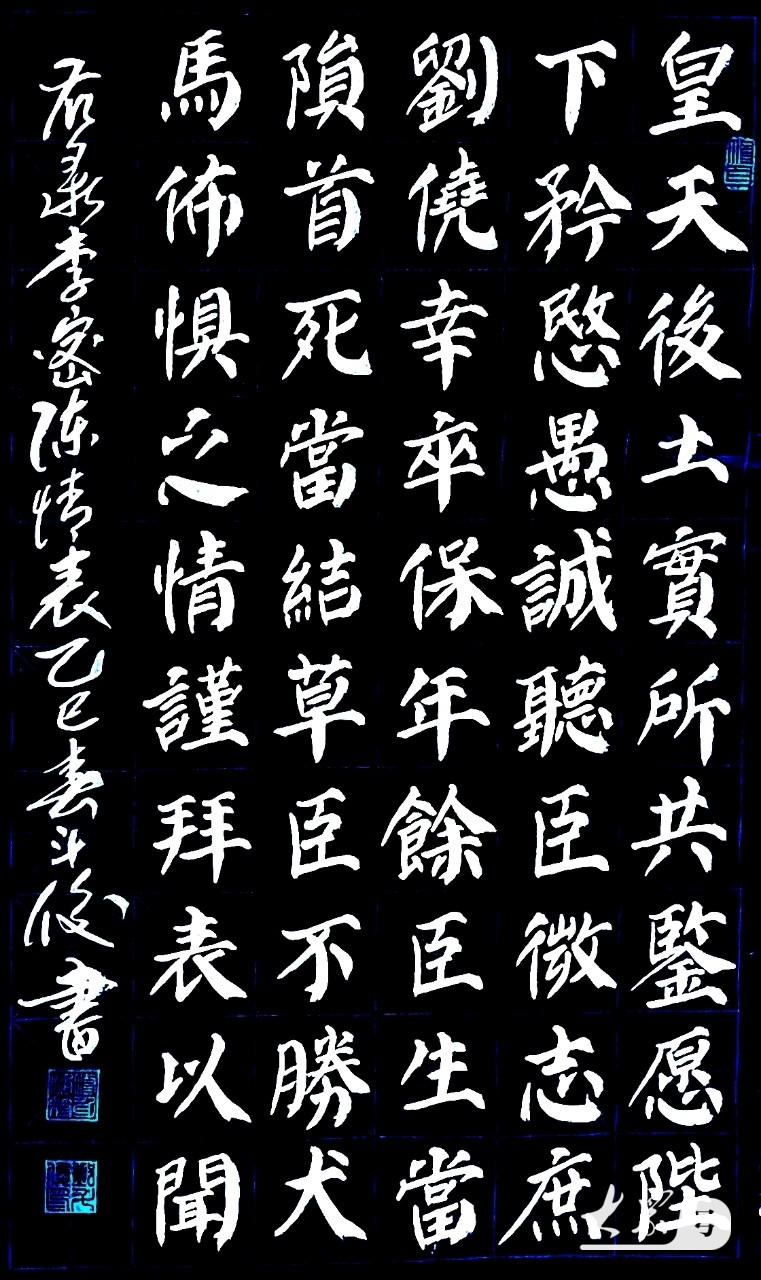 皇天後土實所共鑒愿陛
下矜愍愚誠聽臣微志庶
劉僥幸卒保年餘臣生當
隕首死當結草臣不勝犬
馬佈懼之情謹拜表以聞
右录李密陈情表乙巳春斗俊書
大学号